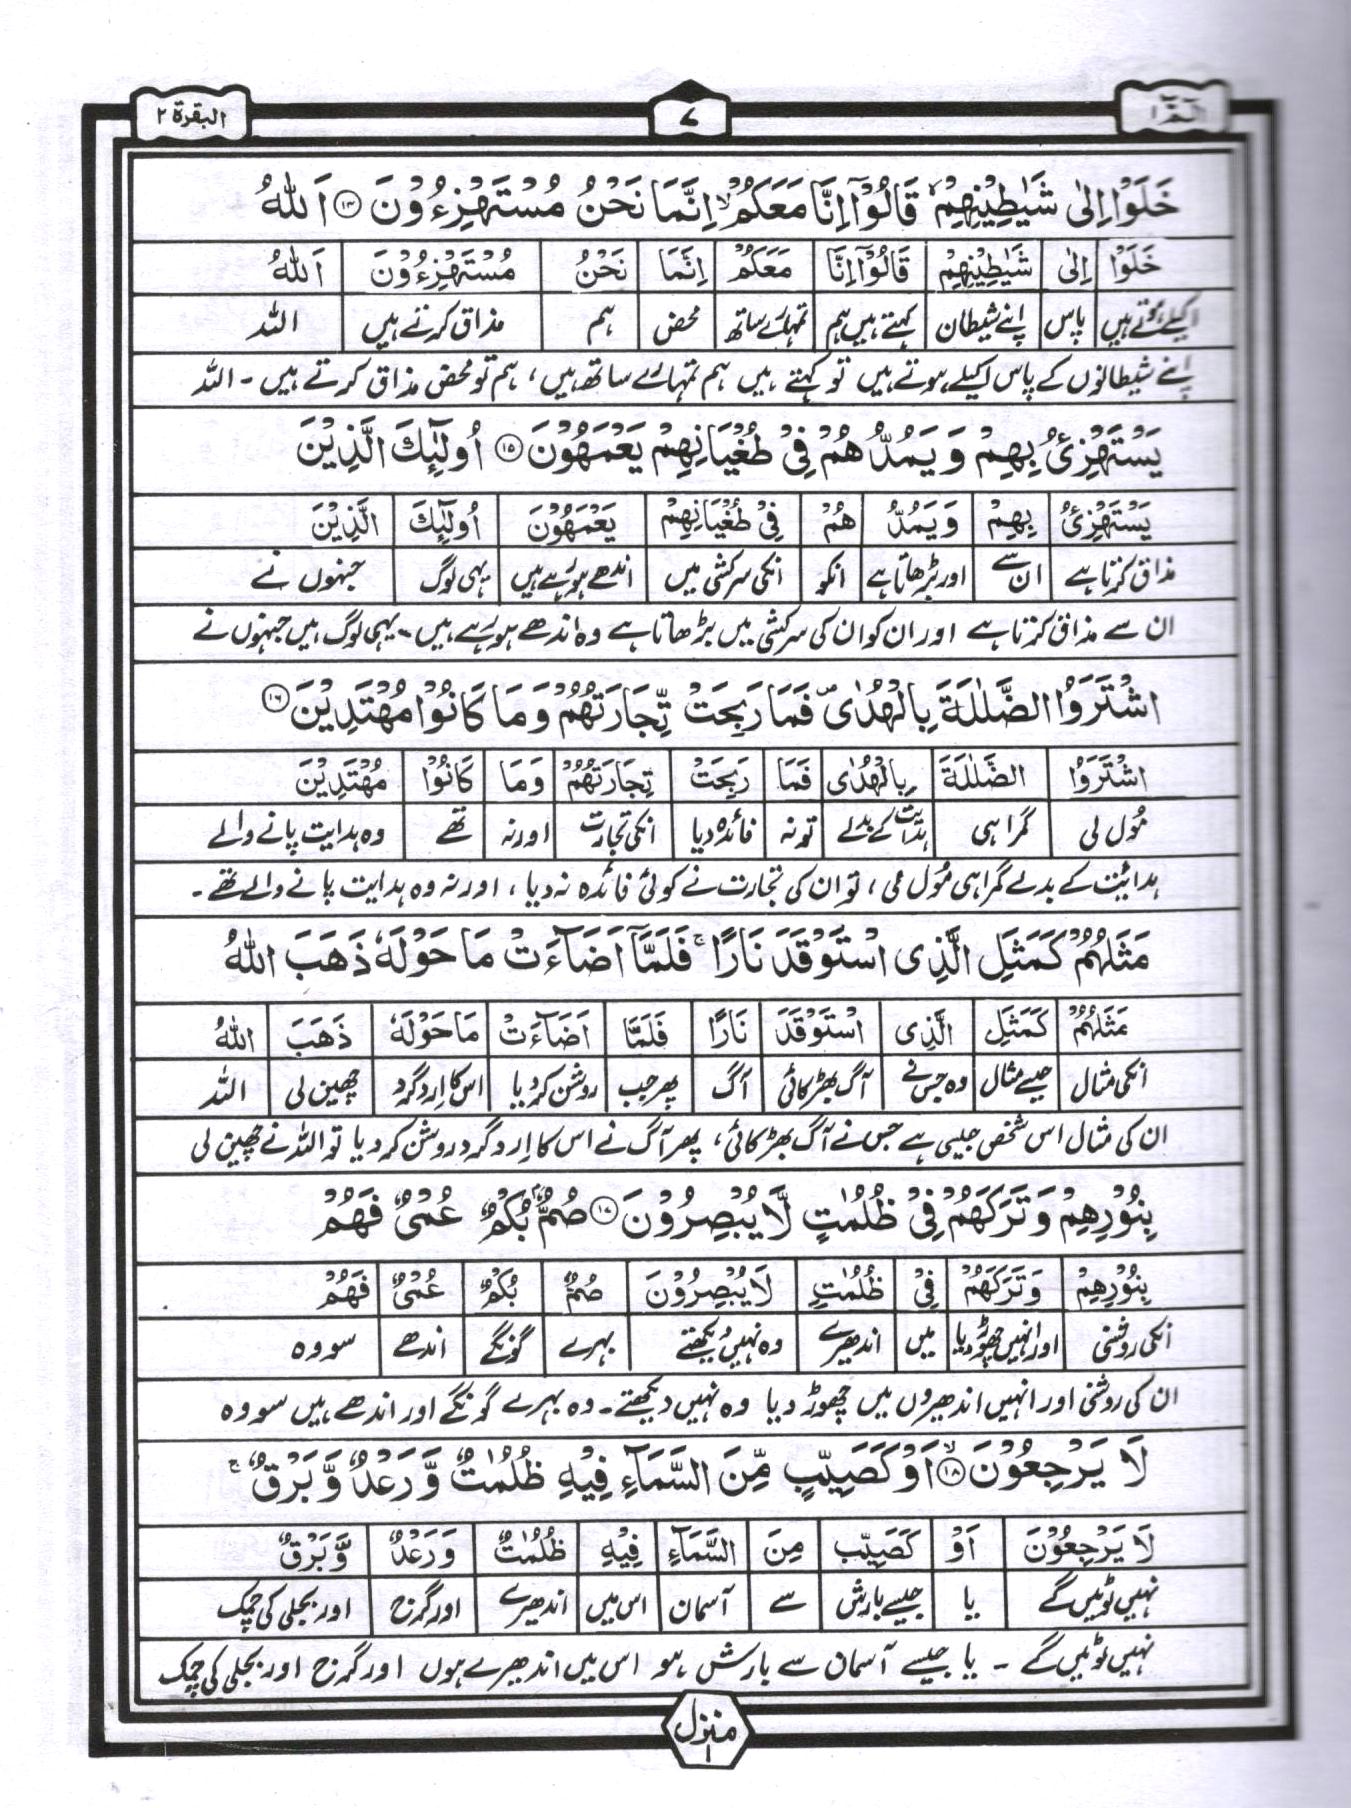 الٓمّٓ ١ ٧ البقرة ٢
خَلَوْا اِلٰى شَيٰطِيْنِهِمْ ۙ قَالُوْٓا اِنَّا مَعَكُمْ ۙ اِنَّمَا نَحْنُ مُسْتَهْزِءُوْنَ ١٤ اَللّٰهُ
خَلَوْا اِلٰى شَيٰطِيْنِهِمْ قَالُوْٓا اِنَّا مَعَكُمْ اِنَّمَا نَحْنُ مُسْتَهْزِءُوْنَ اَللّٰهُ
اکیلے ہوتے ہیں پاس اپنے شیطان کہتے ہیں ہم تمہارے ساتھ محض ہم مذاق کرتے ہیں اللہ
اپنے شیطانوں کے پاس اکیلے ہوتے ہیں تو کہتے ہیں ہم تمہارے ساتھ ہیں، ہم تو محض مذاق کرتے ہیں۔ اللہ
يَسْتَهْزِئُ بِهِمْ وَيَمُدُّهُمْ فِيْ طُغْيَانِهِمْ يَعْمَهُوْنَ ١٥ اُولٰٓئِكَ الَّذِيْنَ
يَسْتَهْزِئُ بِهِمْ وَيَمُدُّ هُمْ فِيْ طُغْيَانِهِمْ يَعْمَهُوْنَ اُولٰٓئِكَ الَّذِيْنَ
مذاق کرتا ہے ان سے اور بڑھاتا ہے انکو انکی سرکشی میں اندھے ہو رہے ہیں یہی لوگ جنہوں نے
ان سے مذاق کرتا ہے اور ان کو ان کی سرکشی میں بڑھاتا ہے وہ اندھے ہو رہے ہیں۔ یہی لوگ ہیں جنہوں نے
اشْتَرَوُا الضَّلٰلَةَ بِالْهُدٰى ۠ فَمَا رَبِحَتْ تِّجَارَتُهُمْ وَمَا كَانُوْا مُهْتَدِيْنَ ١٦
اشْتَرَوُا الضَّلٰلَةَ بِالْهُدٰى فَمَا رَبِحَتْ تِجَارَتُهُمْ وَمَا كَانُوْا مُهْتَدِيْنَ
مول لی گمراہی ہدایت کے بدلے تو نہ فائدہ دیا انکی تجارت اور نہ تھے وہ ہدایت پانے والے
ہدایت کے بدلے گمراہی مول لی، تو ان کی تجارت نے کوئی فائدہ نہ دیا، اور نہ وہ ہدایت پانے والے تھے۔
مَثَلُهُمْ كَمَثَلِ الَّذِى اسْتَوْقَدَ نَارًا ۚ فَلَمَّآ اَضَآءَتْ مَا حَوْلَهٗ ذَهَبَ اللّٰهُ
مَثَلُهُمْ كَمَثَلِ الَّذِى اسْتَوْقَدَ نَارًا فَلَمَّا اَضَآءَتْ مَا حَوْلَهٗ ذَهَبَ اللّٰهُ
انکی مثال جیسے مثال وہ جس نے آگ بھڑکائی آگ پھر جب روشن کر دیا اس کا اِردگرد چھین لی اللہ
ان کی مثال اس شخص جیسی ہے جس نے آگ بھڑکائی، پھر آگ نے اس کا اِردگرد روشن کر دیا تو اللہ نے چھین لی
بِنُوْرِهِمْ وَتَرَكَهُمْ فِيْ ظُلُمٰتٍ لَّا يُبْصِرُوْنَ ١٧ صُمٌّۢ بُكْمٌ عُمْيٌ فَهُمْ
بِنُوْرِهِمْ وَتَرَكَهُمْ فِيْ ظُلُمٰتٍ لَا يُبْصِرُوْنَ صُمٌّ بُكْمٌ عُمْيٌ فَهُمْ
انکی روشنی اور انہیں چھوڑ دیا میں اندھیرے وہ نہیں دیکھتے بہرے گونگے اندھے سو وہ
ان کی روشنی اور انہیں اندھیروں میں چھوڑ دیا وہ نہیں دیکھتے۔ وہ بہرے گونگے اور اندھے ہیں سو وہ
لَا يَرْجِعُوْنَ ۙ ١٨ اَوْ كَصَيِّبٍ مِّنَ السَّمَآءِ فِيْهِ ظُلُمٰتٌ وَّرَعْدٌ وَّبَرْقٌ ۚ
لَا يَرْجِعُوْنَ اَوْ كَصَيِّبٍ مِنَ السَّمَآءِ فِيْهِ ظُلُمٰتٌ وَرَعْدٌ وَّبَرْقٌ
نہیں لوٹیں گے یا جیسے بارش سے آسمان اس میں اندھیرے اور گرج اور بجلی کی چمک
نہیں لوٹیں گے ۔ یا جیسے آسمان سے بارش ہو اس میں اندھیرے ہوں اور گرج اور بجلی کی چمک
منزل ١